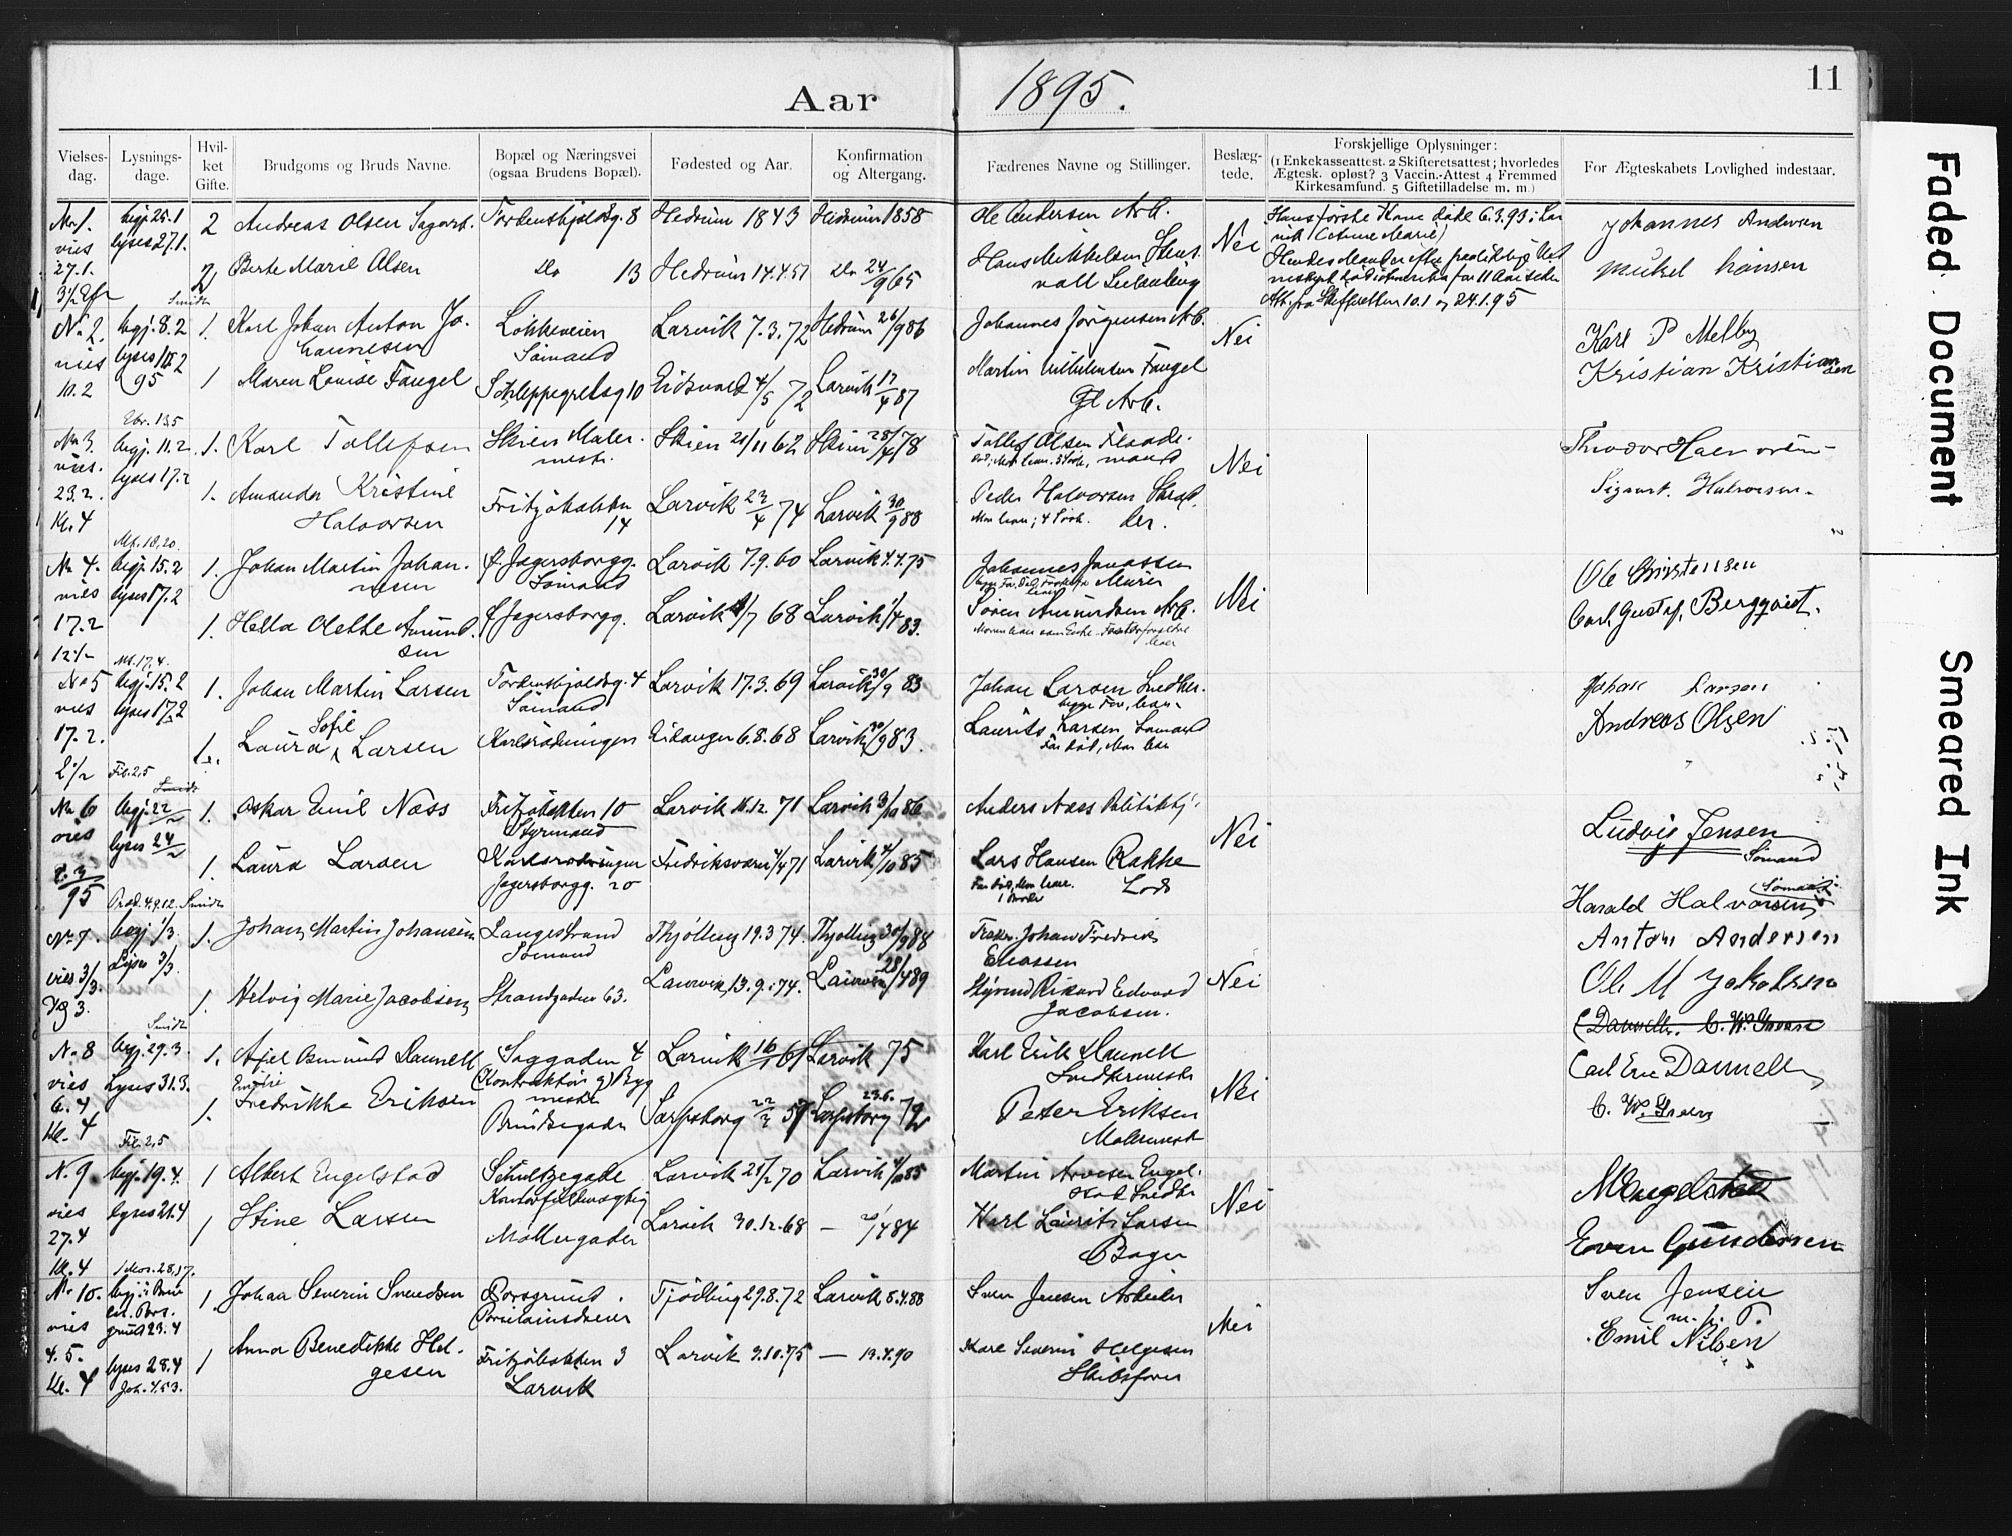 Aar 1895.
11
Vielses-dag.
Lysnings-dage.
Hvil-ket Gifte.
Brudgoms og Bruds Navne.
Bopæl og Næringsvei (ogsaa Brudens Bopæl).
Fødested og Aar.
Konfirmation og Altergang.
Fædrenes Navne og Stillinger.
Beslæg-tede.
Forskjellige Oplysninger:
(1 Enkekasseattest. 2 Skifteretsattest; hvorledes Ægtesk. opløst? 3 Vaccin.-Attest 4 Fremmed Kirkesamfund. 5 Giftetilladelse m. m.)
For Ægteskabets Lovlighed indestaar.
No 1. begj. 25.1 2 Andreas Olsen Tordenskjoldsg. 8 Hedrum 1843 Hedrum 1858 Ole Andersen Arb. Hans første Kone døde 6.3.93 i Lar Johannes Andersen
vies lyses 27.1. Nei
27.1. 2 Berte Marie Olsen Do 13 Hedrum 14.4.51 Do 24/9 65 Hans Mikkelsen
3 1/2 Eft Att. fra Skifteretten 10.1 og 24.1.95
No 2. begj. 8.2 1. Karl Johan Anton Jo- Løkkeveien Larvik 7.3.72 Hedrum 26/9 86 Johannes Jørgensen Arb. Nei Karl P Melby
vies lyses 10.2 hannesen Sømand
10.2 95 1 Maren Louise Faugel Schleppegrelsg 10 Eidsvold 4/5 72 Larvik 17/4 87 Martin Vilhelmsen Faugel Kristian Kristiansen
Gl Arb.
No 3. begj. 11.2. 1. Karl Tollefsen Skien Maler- Skien 21/11 62 Skien 78 Tollef Olsen Nei Theodor Halvorsen
vies. lyses 17.2 mest. mand
23.2. 1. Amanda Kristine Fritzøbakken Larvik 23/4 74 Larvik 30/9 88 Peder Halvorsen Skræd- Sigvart. Halvorsen.
Kl. 4 Halvorsen 14 Mor lever; 4 Søsk. der.
No 4. begj. 15.2 1. Johan Martin Johan- Ø. Jegersborgg. Larvik 7.9.60 Larvik 4.4.75 Johannes Jonassen Ole Christensen
vies lyses 17.2 nesen Sømand Murer Nei
17.2 1. Hella Olette Amund- Ø Jegersborgg. Larvik 68 Larvik 1/4 83. Søren Amundsen Arb. Carl Gustaf, Bergqvist.
12 1/2 sen
No 5 begj. 15.2 1. Johan Martin Larsen Tordenskjoldsg. 4 Larvik 17.3.69 Larvik 30/9 83 Johan Larsen Snedker. Johan Larsen
vies lyses 17.2 Sømand
17.2. 1. Laura Sofie Larsen Karlsrødningen Eidanger 6.8.68 Larvik 30/9 83. Laurits Larsen Sømand Andreas Olsen
Far død, Mor lever
No 6 begj. 22/2 1. Oskar Emil Næss Fritzøbakken 10 Larvik 16.12.71 Larvik 3/10 86 Anders Næss Politibetj. Nei Ludvig Jensen
vies lyses 24/2 Styrmand Sømand
2.3/95 1. Laura Larsen Jegersborgg. 20 Fredriksværn 1/4 71 Larvik 4/10 85 Lars Hansen Rakke Harald Halvorsen, Sømand
Far død, Mor lever. Lods
No 7. begj. 1/3. 1. Johan, Martin Johansen Langestrand Thjølling 19.3.74. Thjølling 30/9 88 Fisker. Johan Fredrik Anton Andersen
vies 3/3. Lyses 3/3. Sømand Eliassen
Kl 3. 1. Helvig Marie Jacobsen, Strandgaden 63. Laurvik, 13.9.74. Laurvik 28/4 89 Styrmd Rikard Edvard Nei Ole M Jakobsen
Jacobsen.
Dannell. C. W. Green
No 8 begj. 29.3. 1. Axel Osmund Dannell Saggaden 4 Larvik 16/1 61 Larvik 75 Karl Erik Dannell Carl Eric Dannell
vies Lyses 31.3. Emilie Snedkermester Nei
6.4 1. Fredrikke Eriksen Brundsegaden Sarpsborg 22/2 57 Sarpsborg 23.6. 72 Peter Eriksen C. W. Green
Kl. 4 Malermest
No 9 begj. 19.4. 1 Albert Engelstad Schultzegade Larvik 70 Larvik 4/10 85 Martin Arvesen Engel- M Engelstad
vies lyses 21.4 stad Snedker Nei
27.4 1 Stine Larsen Møllergaden Larvik 30.12.68 — 20/4 84 Karl Laurits Larsen Even Gundersen
Kl. 4 Bager
No 10. 1 Johan Severin Svendsen Porsgrund. Tjødling 29.8.72 Larvik 8.4.88 Sven Jensen Arbeider Sven Jensen
vies grund 23.4 Porcelainsdreier Nei m. p. P.
4.5. lyses 28.4 1 Anna Benedikte Hel- Fritzøbakken 3 Larvik 9.10.75 — 13.4.90 Karl Severin Helgesen Emil Nilsen
Kl. 4 gesen Larvik Skibsfører
Faded Document
Smeared Ink